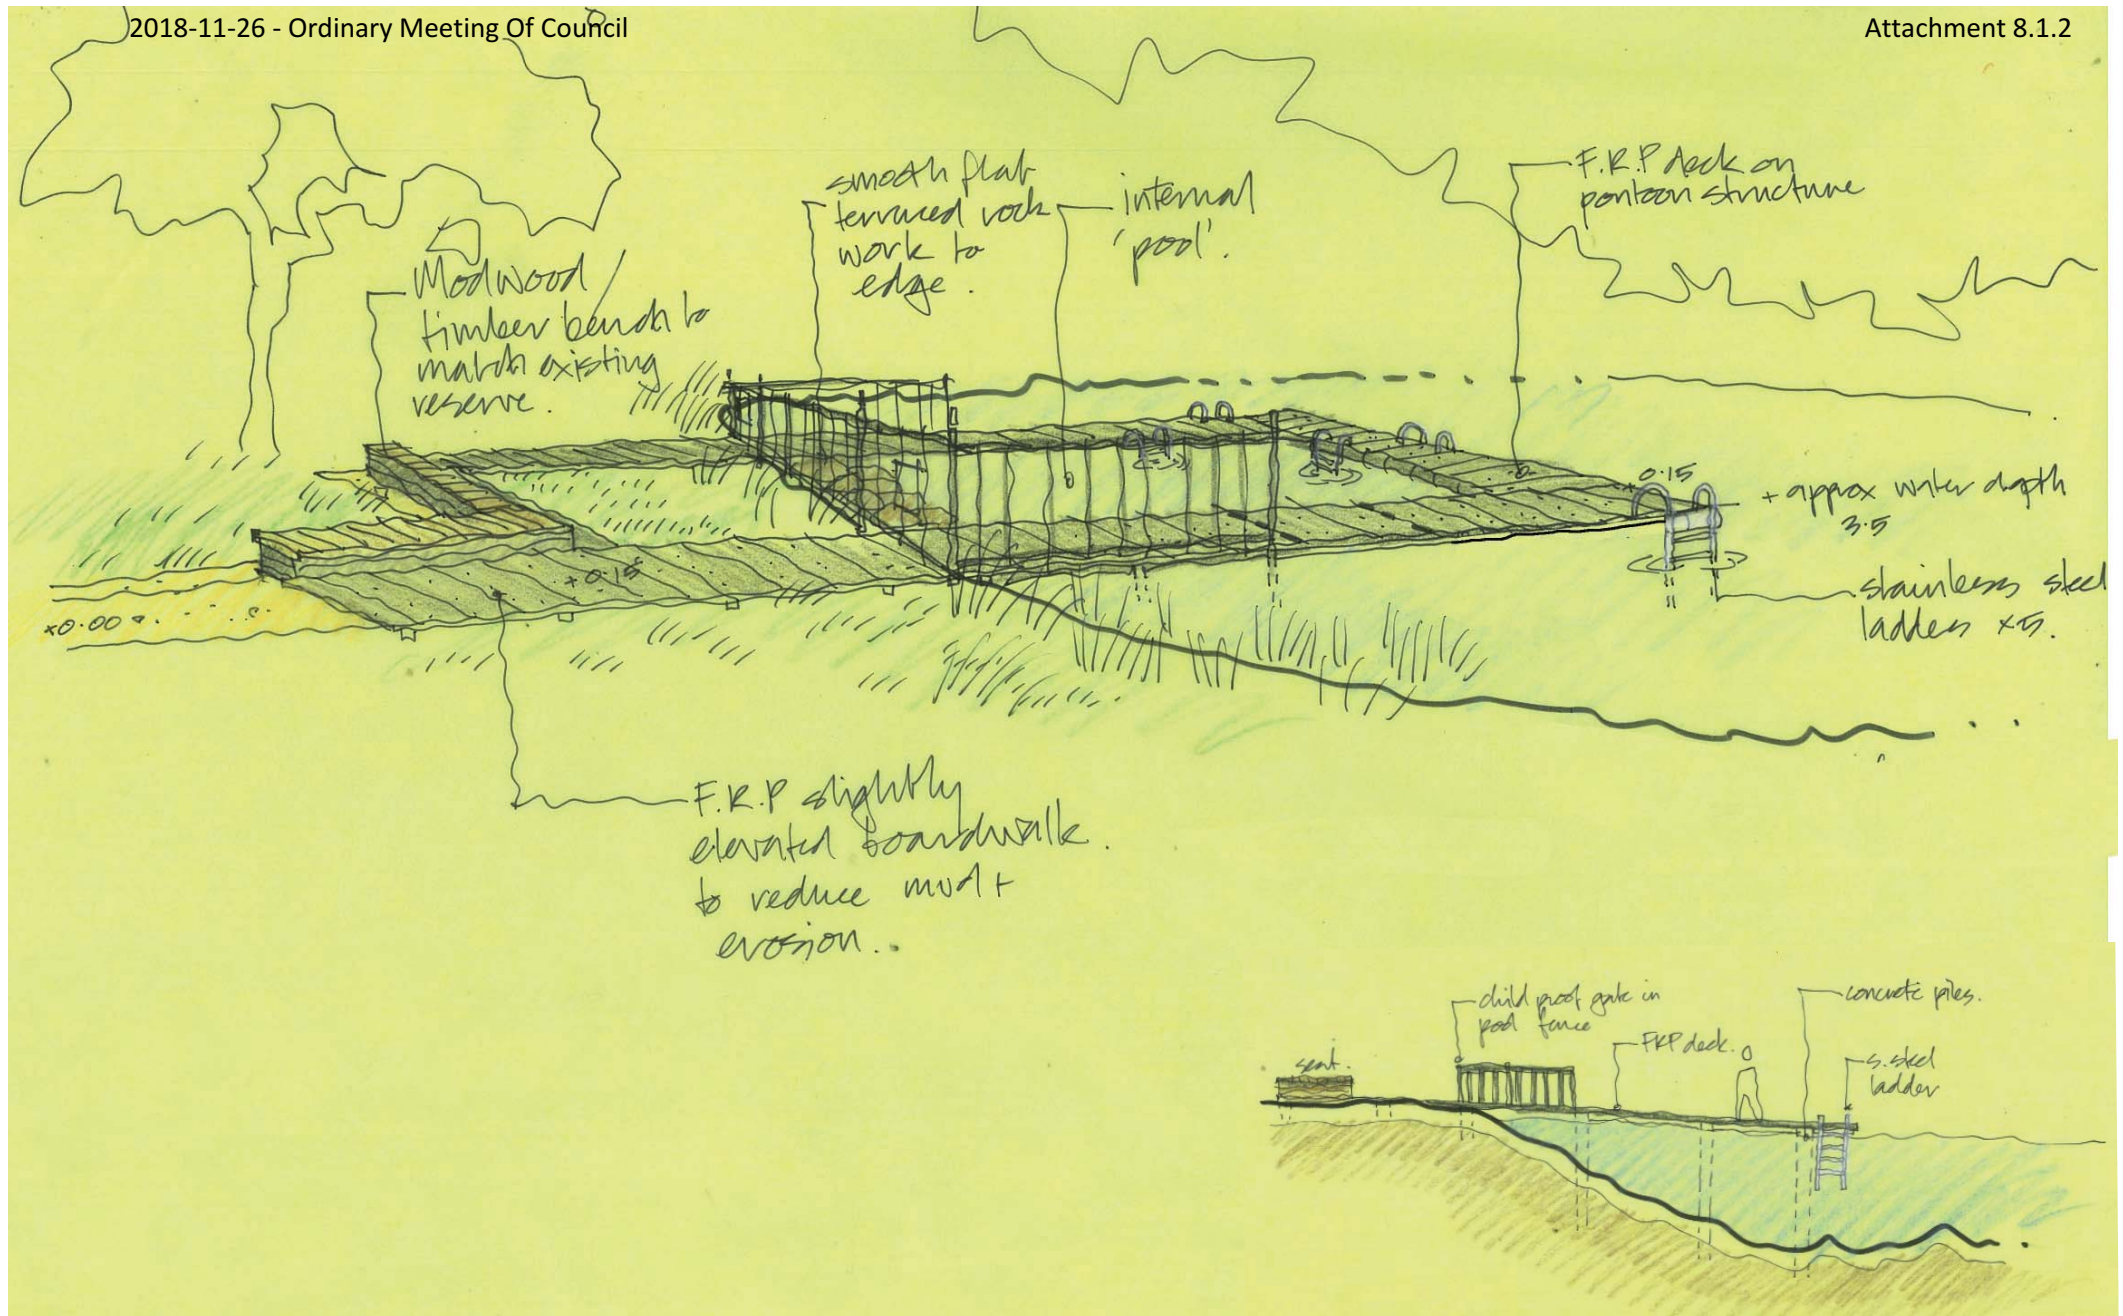 2018-11-26 - Ordinary Meeting Of Council
Attachment 8.1.2
Modwood /
timber bench to
match existing
reserve.
smooth flat
terraced rock
work to
edge.
internal
'pool'.
F.R.P deck on
pontoon structure
+0.15
+ approx water depth
3.5
stainless steel
ladders x5.
+0.15
x0.00
F.R.P slightly
elevated boardwalk.
to reduce mud +
erosion..
seat.
child proof gate in
pool fence
FRP deck.
concrete piles.
s.steel
ladder